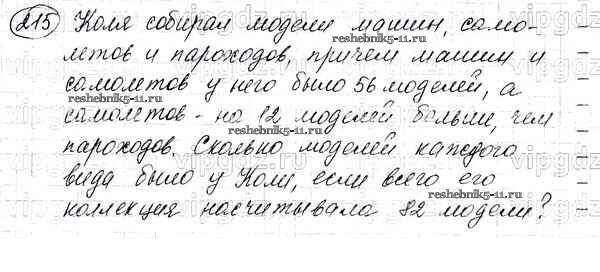 215 Коля собирал модели машин, само-
reshebnik5-11.ru
летов и пароходов, причем машин и
самолетов у него было 56 моделей, а
reshebnik5-11.ru
самолетов - на 12 моделей больше, чем
reshebnik5-11.ru
пароходов. Сколько моделей каждого
вида было у Коли, если всего его
reshebnik5-11.ru
коллекция насчитывала 82 модели?